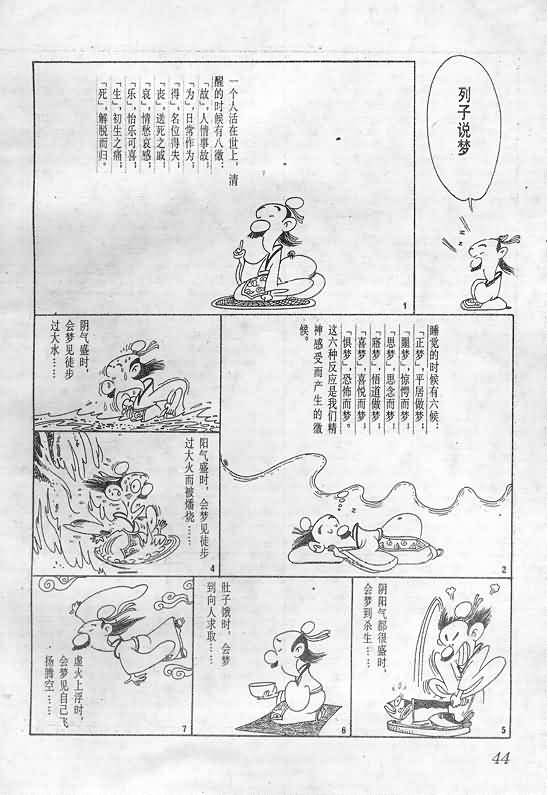 列子说梦
一个人活在世上，清
醒的时候有八徵：
「故」，人情事故；
「为」，日常作为；
「得」，名位得失；
「丧」，送死之戚；
「哀」，情愁哀感；
「乐」，怡乐可喜；
「生」，初生之痛；
「死」，解脱而归。
1
睡觉的时候有六候：
「正梦」，平居做梦；
「噩梦」，惊愕而梦；
「思梦」，思念而梦；
「寤梦」，悟道做梦；
「喜梦」，喜悦而梦；
「惧梦」，恐怖而梦，
这六种反应是我们精
神感受而产生的徵
候。
2
阴气盛时，
会梦见徒步
过大水……
阳气盛时，会梦见徒步
过大火而被燔烧……
4
阴阳气都很盛时，
会梦到杀生……
5
肚子饿时，会梦
到向人求取……
6
虚火上浮时，
会梦见自己飞
扬腾空……
7
44